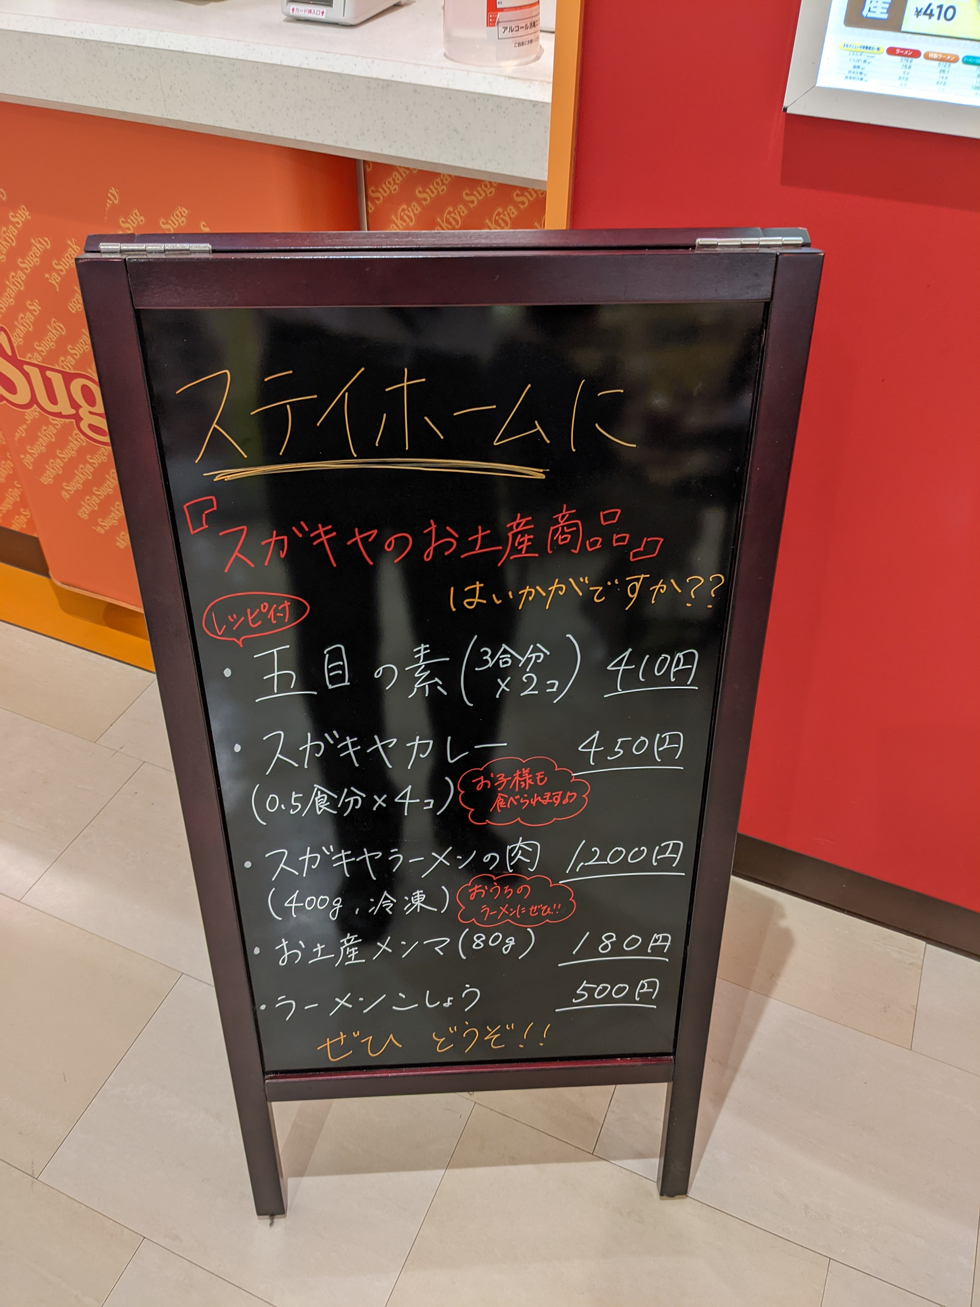 カード挿入口
アルコール消毒
産
¥410
ラーメン
Sugakiya Sugakiya
Sug
ステイホームに
『スガキヤのお土産商品』
はいかがですか??
レシピ付
・五目の素(3合分×2コ) 410円
・スガキヤカレー 450円
(0.5食分×4コ)
お子様も
食べられますよ♪
・スガキヤラーメンの肉 1,200円
(400g,冷凍)
おうちの
ラーメンにぜひ!!
・お土産メンマ(80g) 180円
・ラーメンこしょう 500円
ぜひ どうぞ!!